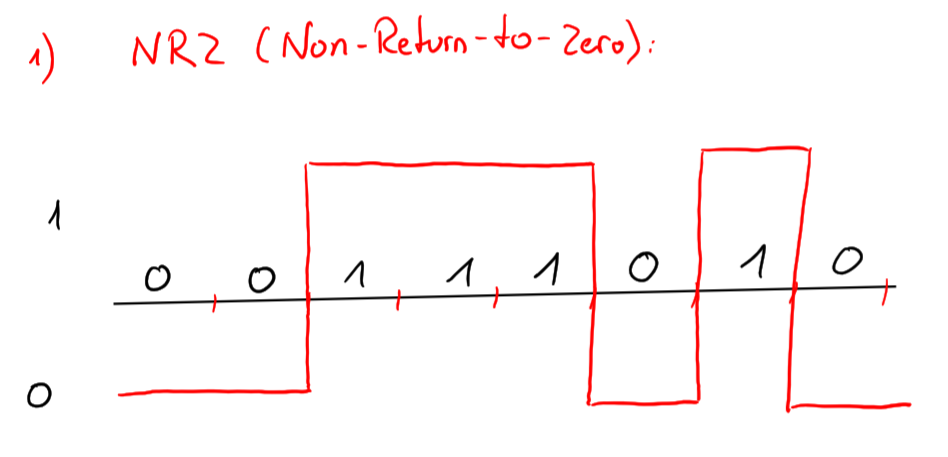 1) NRZ (Non-Return-to-Zero):
1
0 0 1 1 1 0 1 0
0